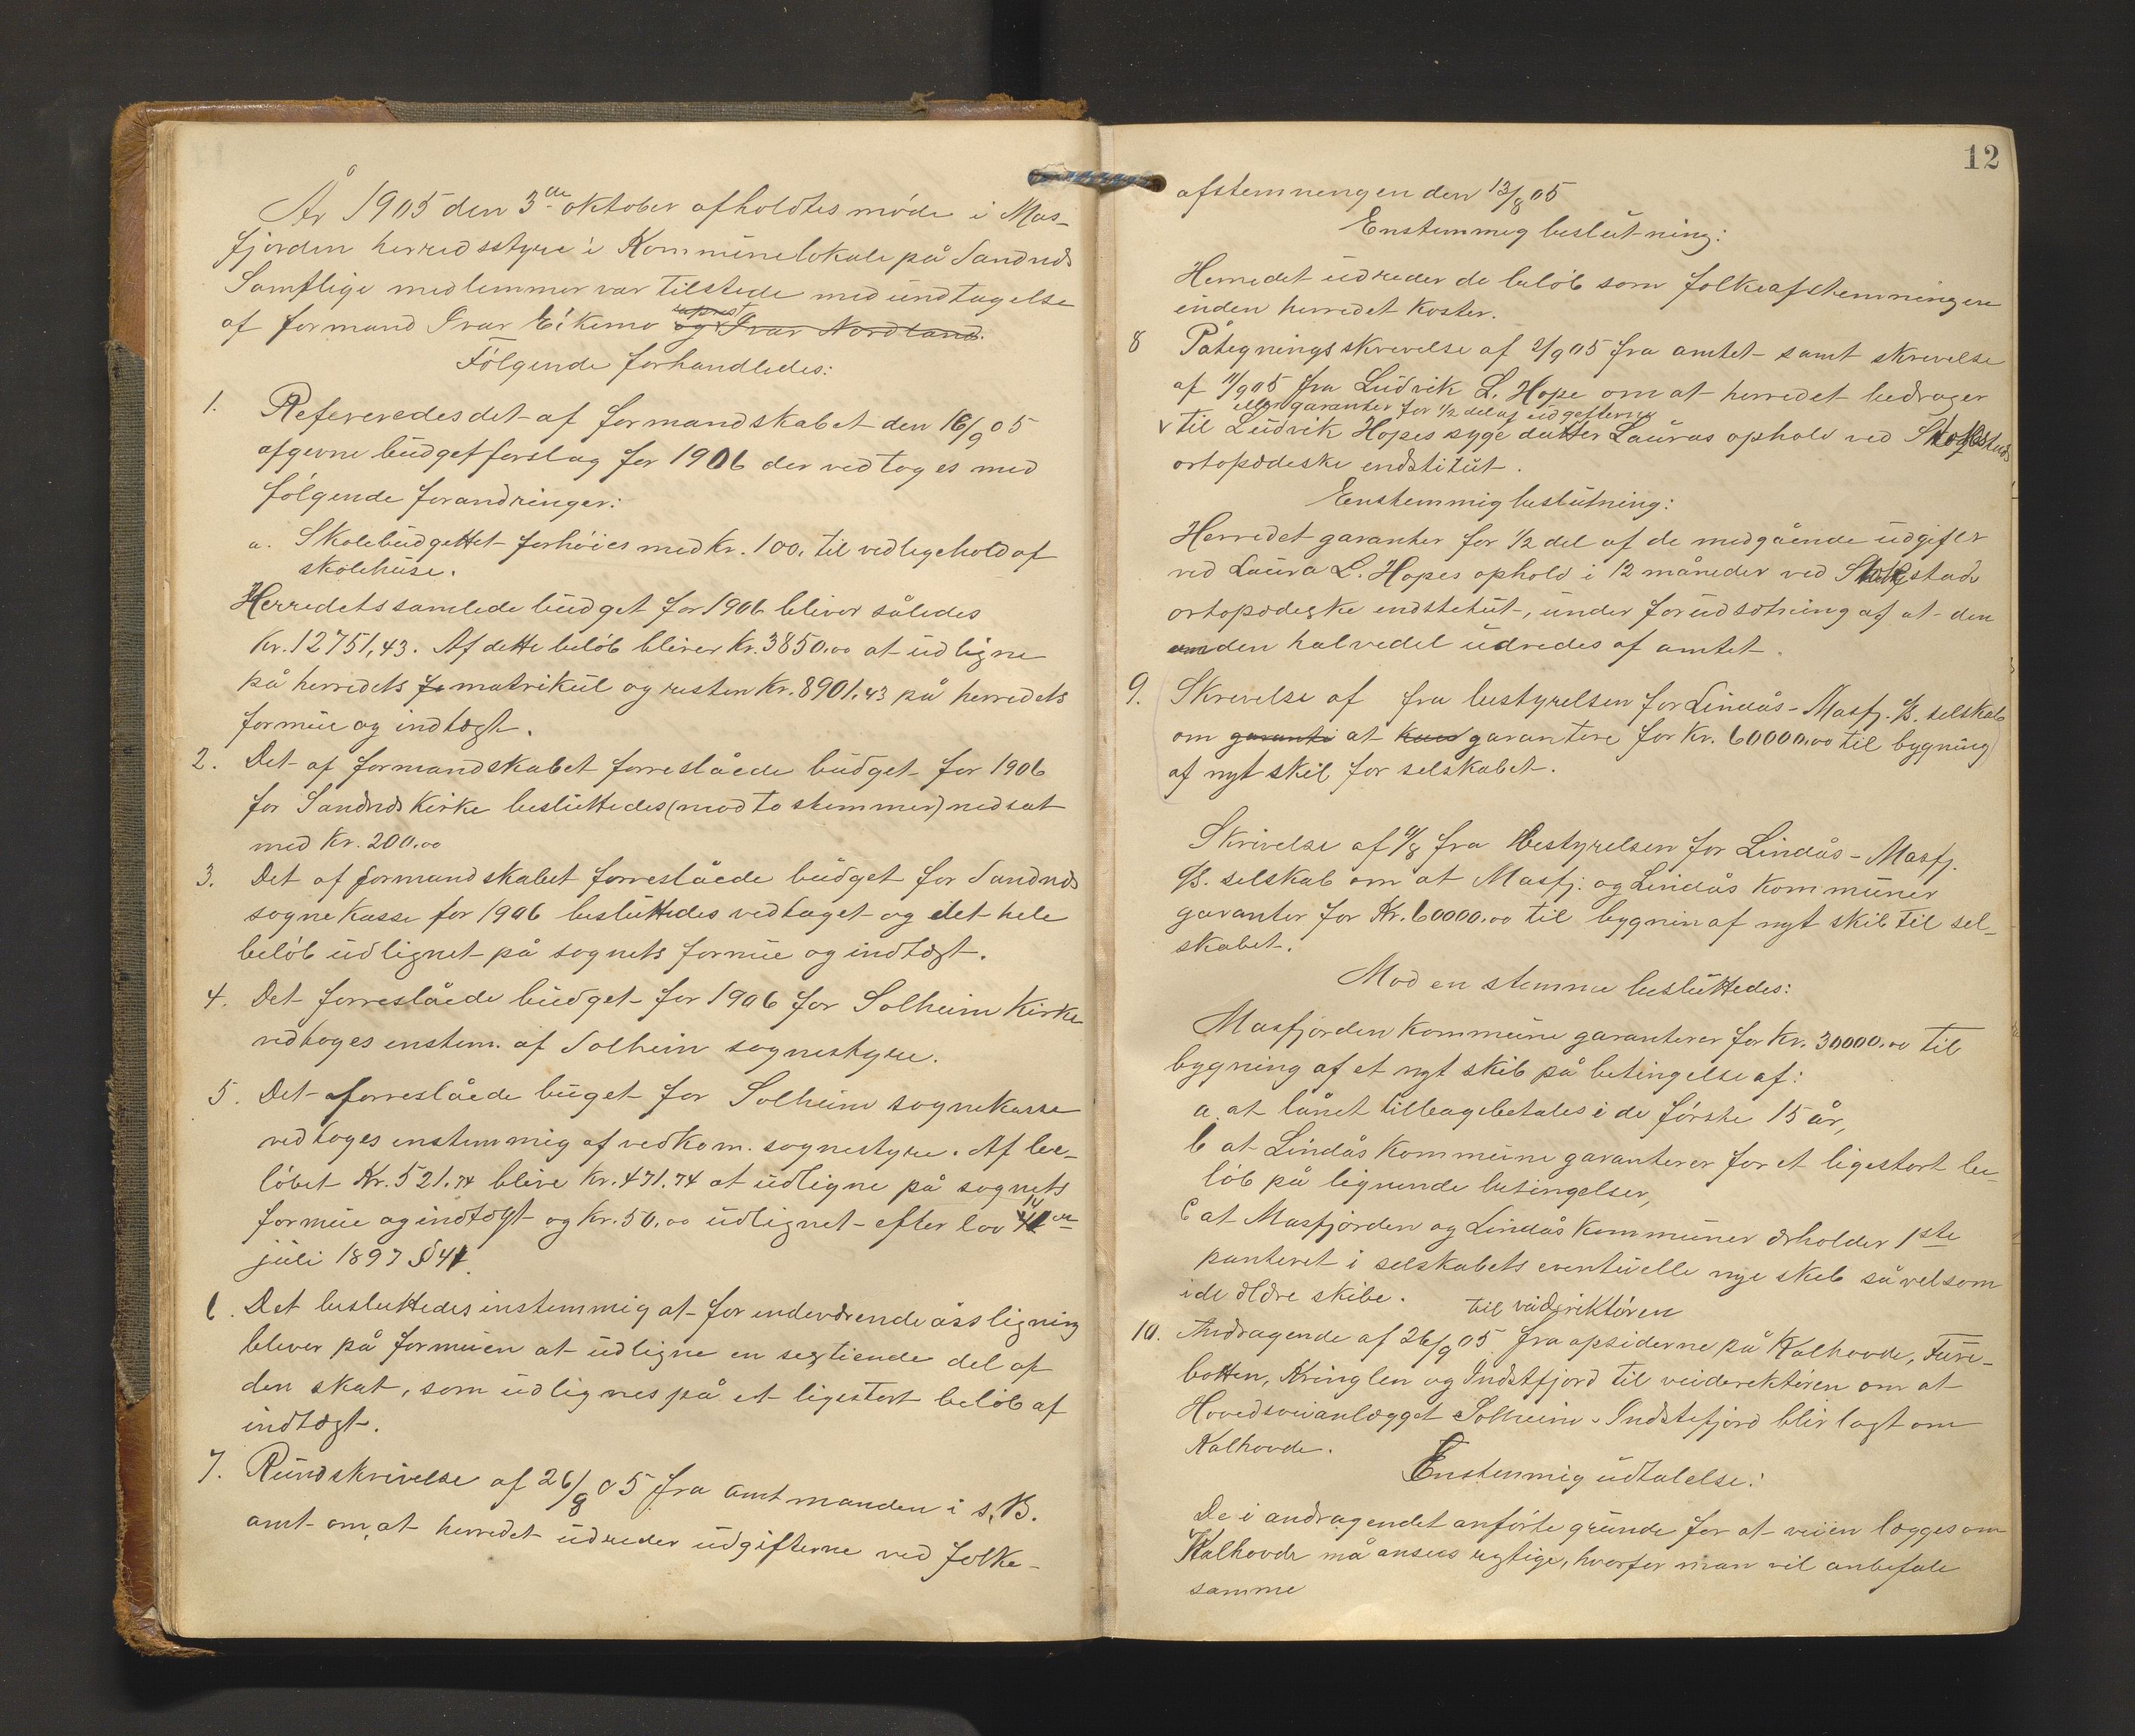 År 1905 den 3die oktober afholdtes møde i Mas-
fjorden herredsstyre i Kommunelokale på Sandnes
Samtlige medlemmer var tilstede med undtagelse
af formand Ivar Eikemo og Ivar Nordland.
Følgende forhandledes:
1. Refereredes det af formandskabet den 16/9 05
afgivne budgetforslag for 1906 der vedtoges med
følgende forandringer:
a. Skolebudgettet forhøies med kr. 100, til vedligehold af
skolehuse.
Herredets samlede budget for 1906 bliver således
Kr. 12751,43. Af dette beløb bliver kr. 3850,00 at udligne
på herredets fo matrikul og resten kr. 8901,43 på herredets
formue og indtægt.
2. Det af formandskabet forreslåede budget for 1906
for Sandnes Kirke besluttedes (mod to stemmer) nedsat
med Kr. 200.00
3. Det af formandskabet forreslåede budget for Sandnes
sognekasse for 1906 besluttedes vedtaget og det hele
beløb udlignet på sognets formue og indtægt.
4. Det forreslåede budget for 1906 for Solheim Kirke
vedtoges enstem. af Solheim sognestyre.
5. Det forreslåede buget for Solheim sognekasse
vedtoges enstemmig af vedkom. sognestyre. Af be-
løbet Kr. 521.74 blive Kr. 471.74 at udligne på sognets
formue og indtægt og Kr. 50.00 udlignet efter lov
juli 1897 § 41.
6. Det besluttedes instemmig at for indeværende års ligning
bliver på formuen at udligne en segtiende del af
den skat, som udlignes på et ligestort beløb af
indtægt.
7. Rundskrivelse af 26/8 05 fra amtmanden i s. B.
amt om at herredet udreder udgifterne ved folke-
12
afstemningen den 13/8 05
Enstemmig beslutning:
Herredet udreder de beløb som folkeafstemningen
inden herredet koster.
8 Påtegningsskrivelse af 2/9 05 fra amtet samt skrivelse
af 11/9 05 fra Ludvik L. Hope om at herredet bidrager
eller garanter for 1/2 del af udgifterne
til Ludvik Hopes syge datter Lauras ophold ved
ortopædiske institut.
Enstemmig beslutning:
Herredet garanter for 1/2 del af de medgående udgifter
ved Laura L. Hopes ophold i 12 måneder ved
ortopædiske institut, under forudsætning af at den
anden halvedel udredes af amtet.
9. Skrivelse af fra bestyrelsen for Lindås-Masfj. D/S. selskab
om garanti at garantere for Kr. 60000,00 til bygning
af nyt skib for selskabet.
Skrivelse af fra Bestyrelsen for Lindås-Masfj.
D/S. selskab om at Masfj: og Lindås Kommuner
garanter for Kr. 60000.00 til bygnin af nyt skib til sel-
skabet.
Mod en stemme besluttedes:
Masfjorden Kommune garanterer for Kr. 30000.00 til
bygning af et nyt skib på betingelse af:
a at lånet tilbagebetales i de første 15 år,
b at Lindås Kommune garanterer for et ligestort be-
løb på lignende betingelser,
c at Masfjorden og Lindås Kommuner erholder 1ste
panteret i selskabets eventuelle nye skib såvelsom
i de ældre skibe.
til veidirektøren
10. Andragende af 26/9 05. fra opsiderne på Kalhovde, Fure-
botten, Kringlen og Indstfjord til veidirektøren om at
Hovedsveianlægget Solheim-Indstefjord blir lagt om
Kalhovde.
Enstemmig udtalelse:
De i andragendet anførte grunde for at veien lægges om
Kalhovde må ansees rigtige, hvorfor man vil anbefale
samme